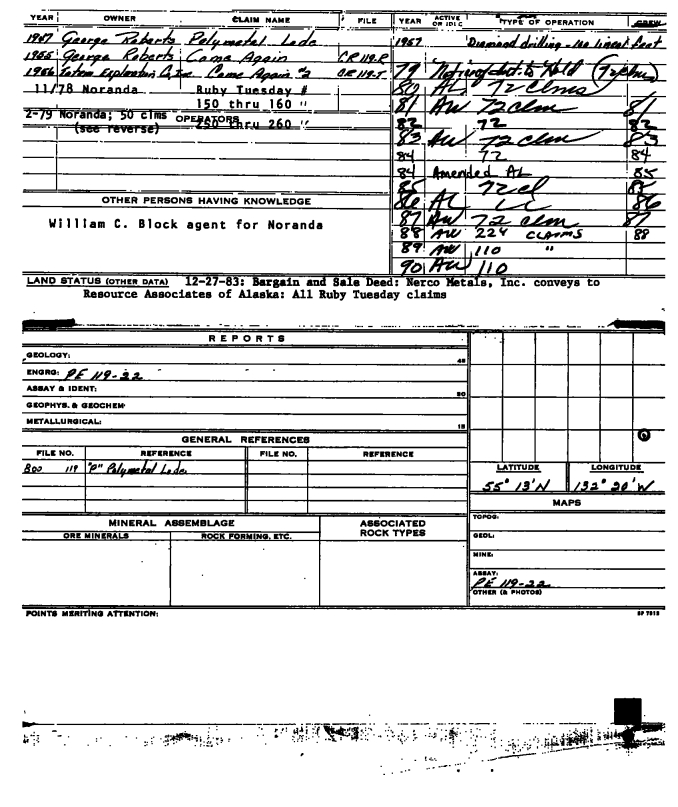 YEAR OWNER CLAIM NAME FILE YEAR ACTIVE OR IDLE TYPE OF OPERATION CREW
1957 George Roberts Polymetal Lode
1955 George Roberts Come Again CR 119-R
1956 Exploration Come Again #2 CR 119-T
11/78 Noranda Ruby Tuesday #
150 thru 160 "
2-79 Noranda; 50 clms 250 thru 260 "
OPERATORS
(see reverse)
OTHER PERSONS HAVING KNOWLEDGE
William C. Block agent for Noranda
1957 Diamond drilling - 100 lineal feet
79 Notice of Int. to Hold (72 clm)
80 AL 72 clms
81 AW 72 clm 81
82 72 82
83 AW 72 clm 83
84 72 84
84 Amended AL 85
85 72 cl 85
86 AL 86
87 AW 72 clm 87
88 AW 224 CLAIMS 88
89 AW 110 "
90 AW 110
LAND STATUS (OTHER DATA) 12-27-83: Bargain and Sale Deed: Nerco Metals, Inc. conveys to
Resource Associates of Alaska: All Ruby Tuesday claims
REPORTS
GEOLOGY:
ENGRG: PE 119-22
ASSAY & IDENT:
GEOPHYS. & GEOCHEM:
METALLURGICAL:
GENERAL REFERENCES
FILE NO. REFERENCE FILE NO. REFERENCE
Boo 119 "P" Polymetal Lode
LATITUDE LONGITUDE
55° 13'N 132° 20'W
MAPS
TOPOG:
GEOL:
MINE:
ASSAY:
PE 119-22
OTHER (& PHOTOS)
MINERAL ASSEMBLAGE ASSOCIATED ROCK TYPES
ORE MINERALS ROCK FORMING, ETC.
POINTS MERITING ATTENTION: SP 7012